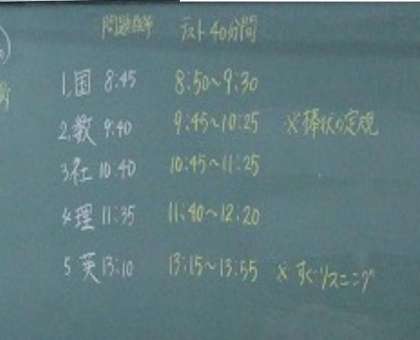 問題配布 テスト40分間
1.国 8:45 8:50～9:30
2.数 9:40 9:45～10:25 ※棒状の定規
3.社 10:40 10:45～11:25
4.理 11:35 11:40～12:20
5.英 13:10 13:15～13:55 ※すぐリスニング